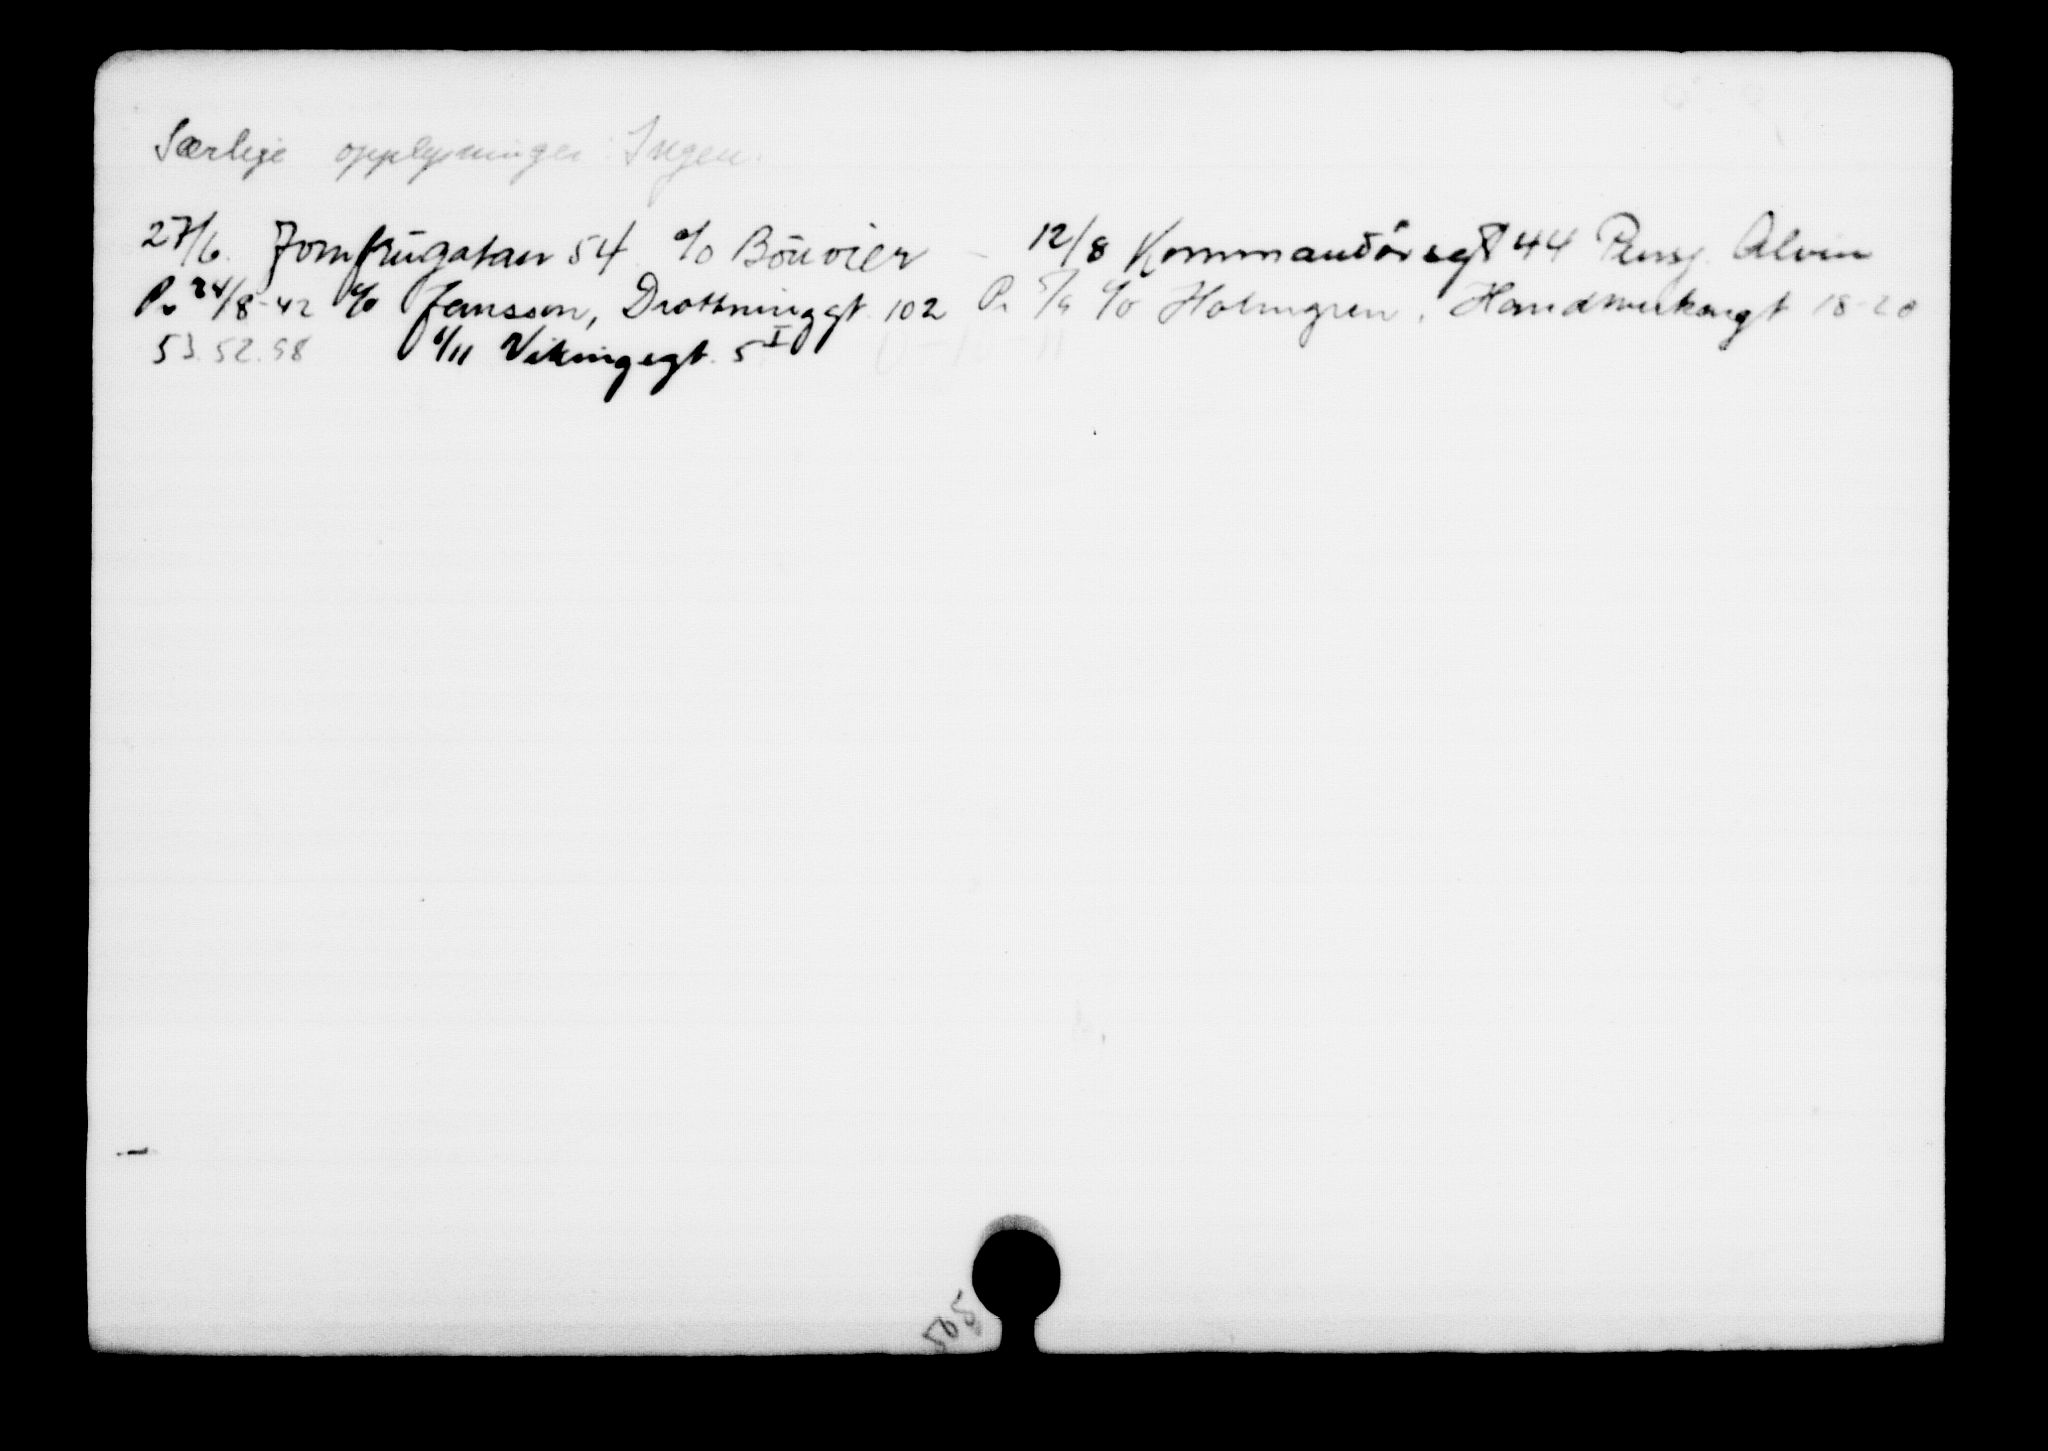 Særlige opplysninger: Ingen.
27/6. Jomfrugatan 54 c/o Bouvier - 12/8 Kommandörsgt 44 Pensj. Alvin
Pr 24/8-42 c/o Jansson, Drottninggt 102 Pr c/o Holmgren, Handtverkaregt 18-20
53.52.58 6/11 Vikingagt. 5 I
505